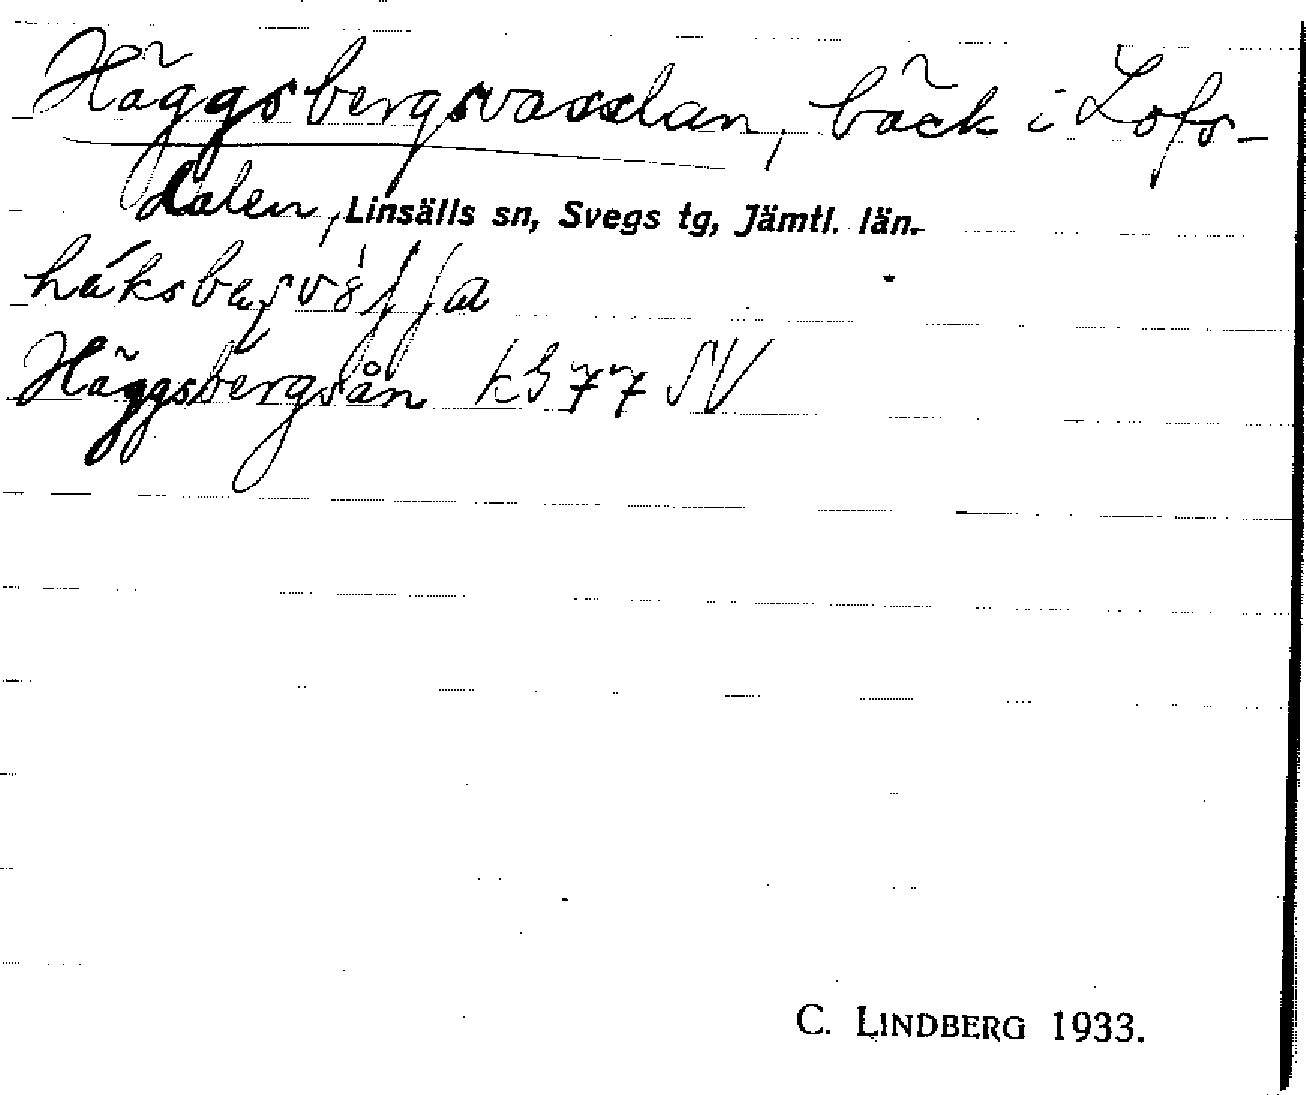 Häggsbergsvasslan, bäck i Lofs-
dalen, Linsälls sn, Svegs tg, Jämtl. län.
Häggsbergsån kB 77 SV
C. LINDBERG 1933.